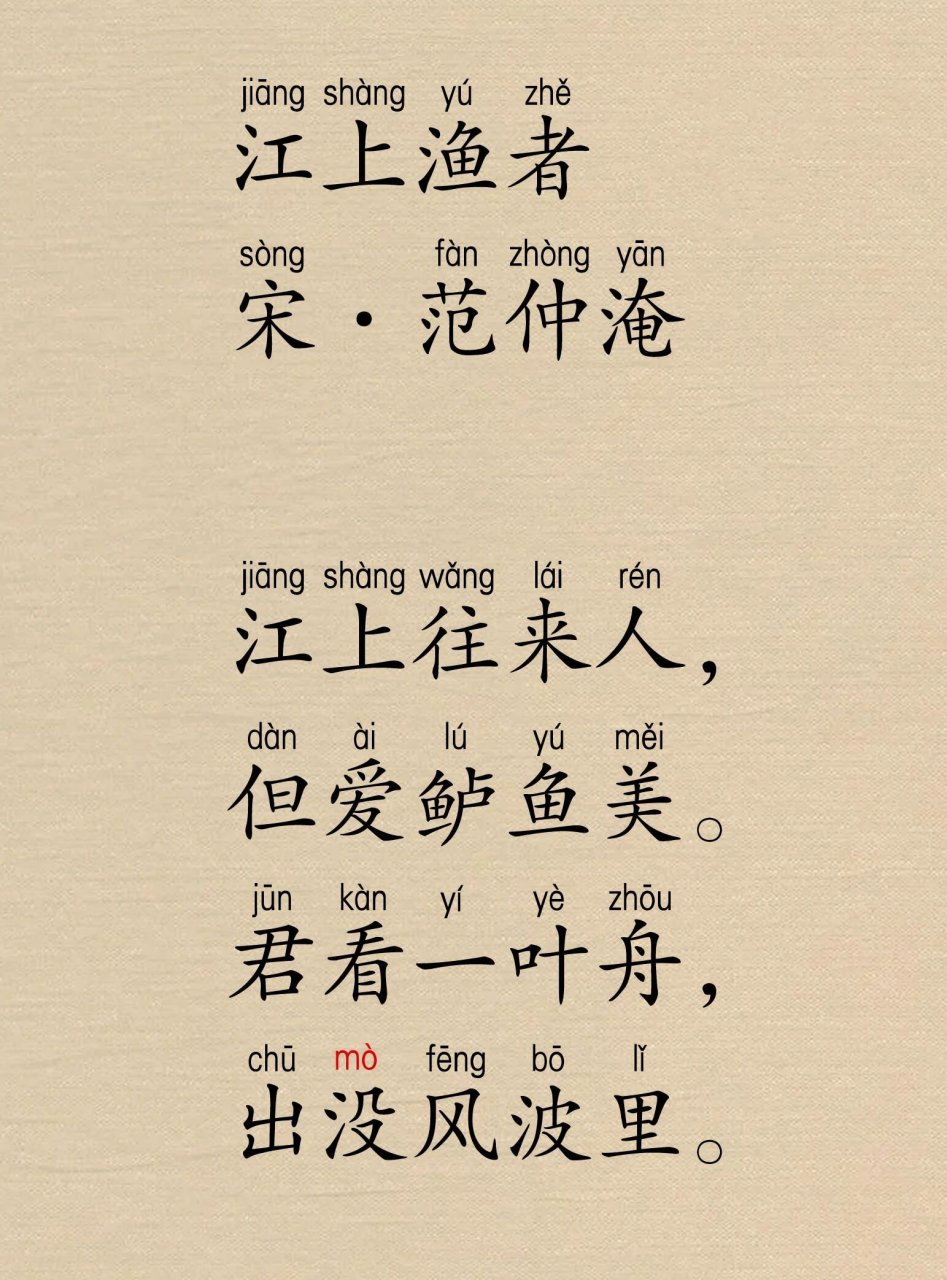 jiāng shàng yú zhě
江上渔者
sòng fàn zhòng yān
宋·范仲淹
jiāng shàng wǎng lái rén
江上往来人，
dàn ài lú yú měi
但爱鲈鱼美。
jūn kàn yí yè zhōu
君看一叶舟，
chū mò fēng bō lǐ
出没风波里。